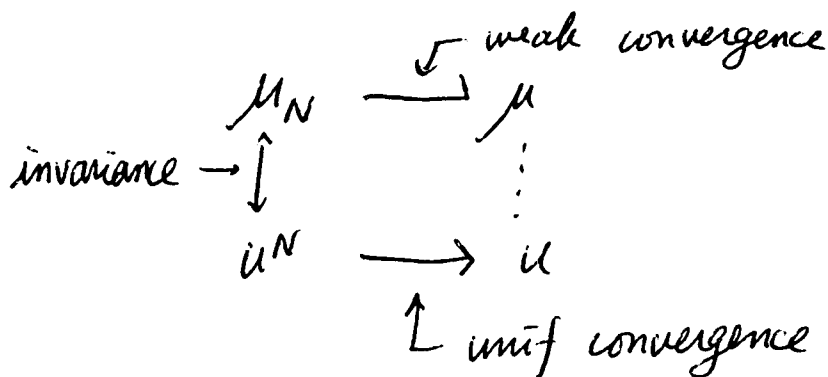 weak convergence
μ_N → μ
invariance →
u^N → u
unif convergence